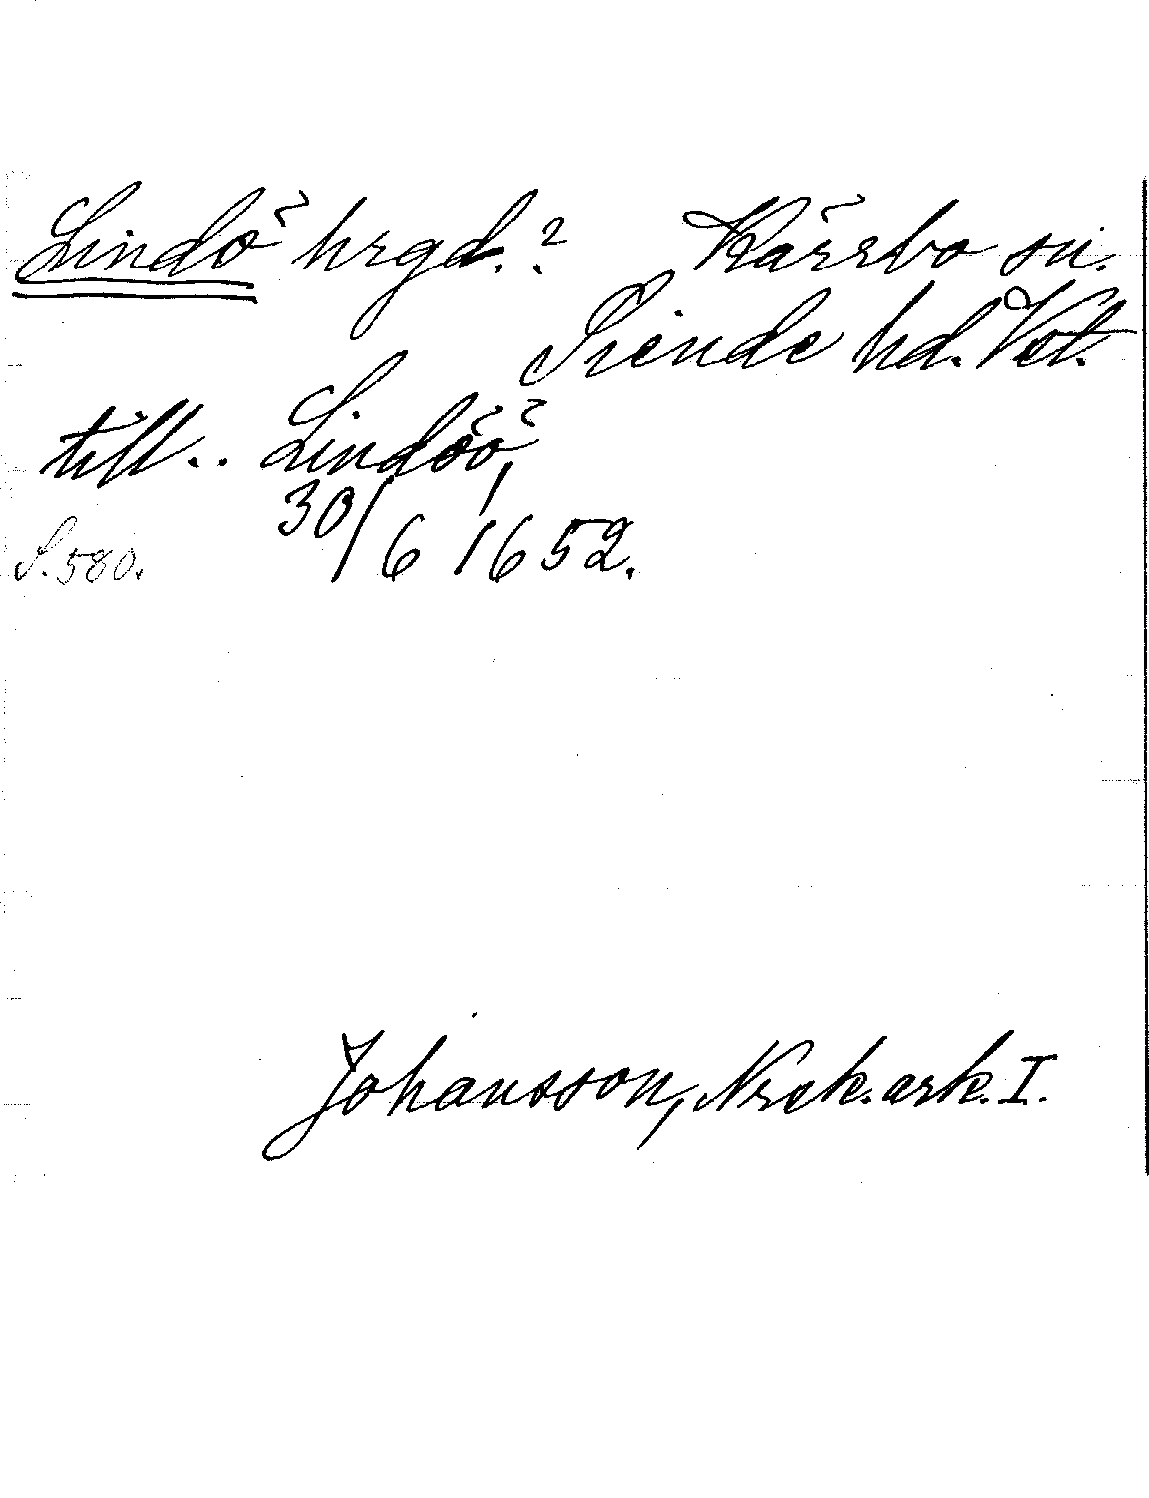 Lindö hrgd.? Kärrbo sn.
Siende hd. Vst.
till.. Lindöö,
30/6 1652.
S. 580.
Johansson, Nrck. ark. I.